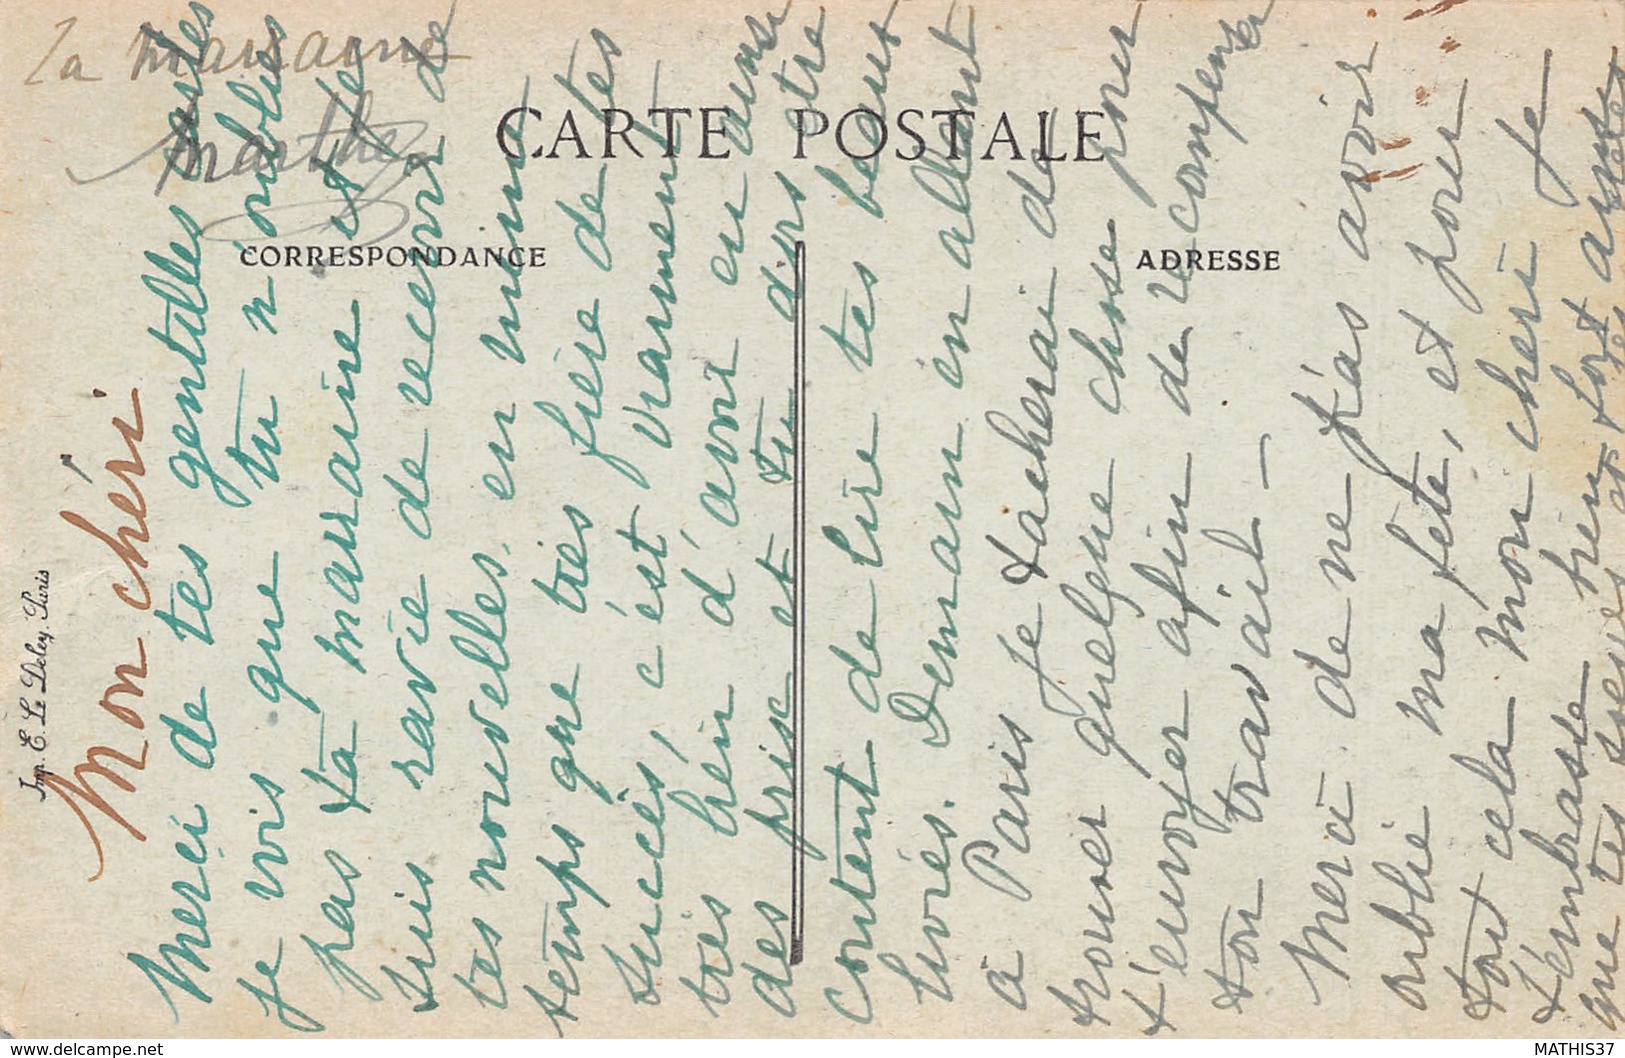 CARTE POSTALE
CORRESPONDANCE
ADRESSE
Imp. E. Le Deley, Paris
Mon chéri
Merci de tes gentilles cartes
je vois que tu n'oublies
pas ta marraine et te
suis ravie de recevoir de
tes nouvelles, en même
temps que très fière de tes
succès, c'est vraiment
très bien d'avoir eu aussi
des prix et tu dois être
content de lire tes beaux
livres. Demain en allant
à Paris je tacherai de
trouver quelque chose pour
t'envoyer afin de récompenser
ton travail —
Merci de ne pas avoir
oublié ma fête, et pour
tout cela mon chéri je
t'embrasse bien fort ainsi
que tes soeurs et
La marraine
Marthe
MATHIS37
www.delcampe.net